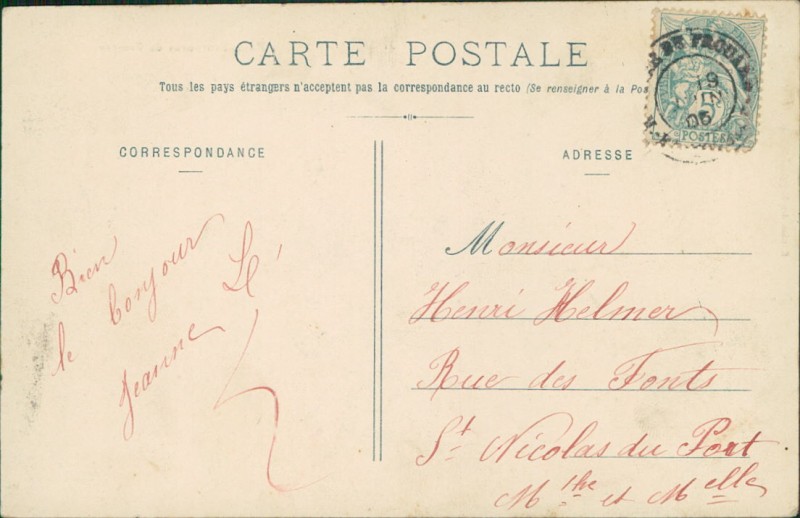 CARTE POSTALE
Tous les pays étrangers n'acceptent pas la correspondance au recto (Se renseigner à la Pos
CORRESPONDANCE
ADRESSE
Bien
le bonjour
Jeanne
Monsieur
Henri Helmer
Rue des Fonts
St Nicolas du Port
Mthe et Melle
POSTES
05